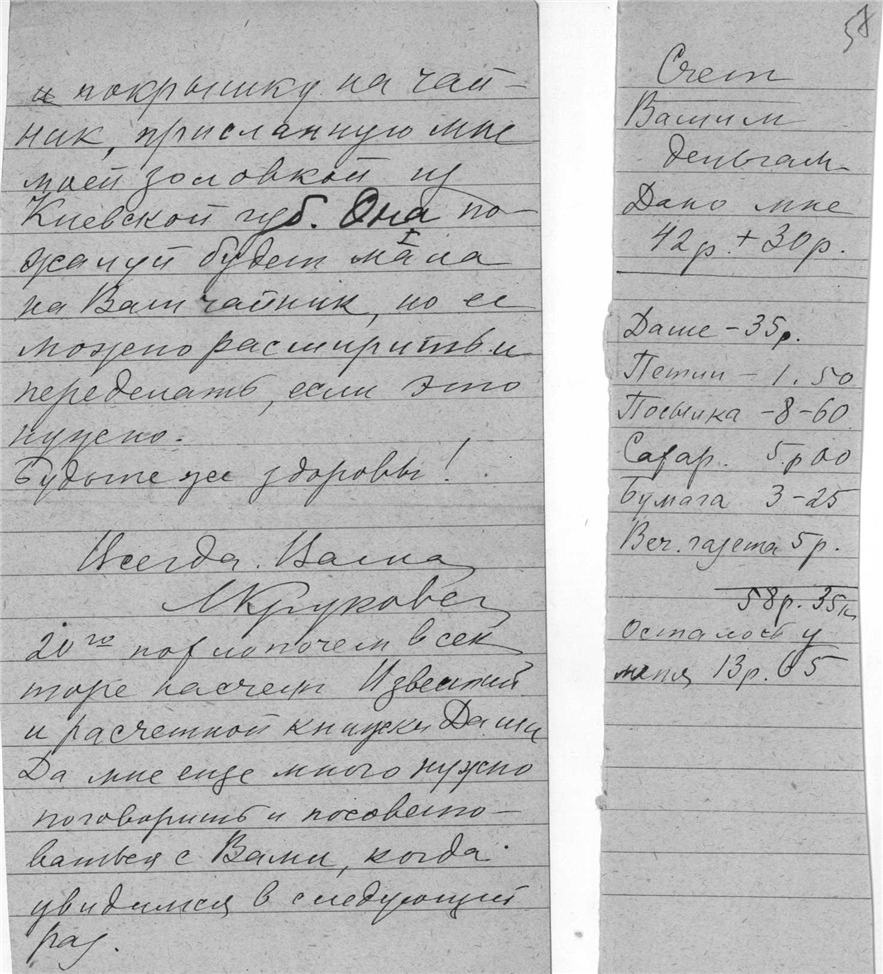 и покрышку на чай-
ник, присланную мне
моей золовкой из
Киевской губ. Она по-
жалуй будет мала
на Ваш чайник, но ее
можно расширить и
переделать, если это
нужно.
Будьте же здоровы!
Всегда Ваша
МКруковец
20го похлопочем в сек
торе насчет Известий
и расчетной книжки Даши
Да мне еще много нужно
поговорить и посовето-
ваться с Вами, когда
увидимся в следующий
раз.
58
Счет
Вашим
деньгам
Дано мне
42р. + 30р.
Даше - 35р.
Петин - 1.50
Посылка - 8-60
Сахар. 5р 00
Бумага 3-25
Веч. газета 5р.
58р. 35к
Осталось у
меня 13р. 65